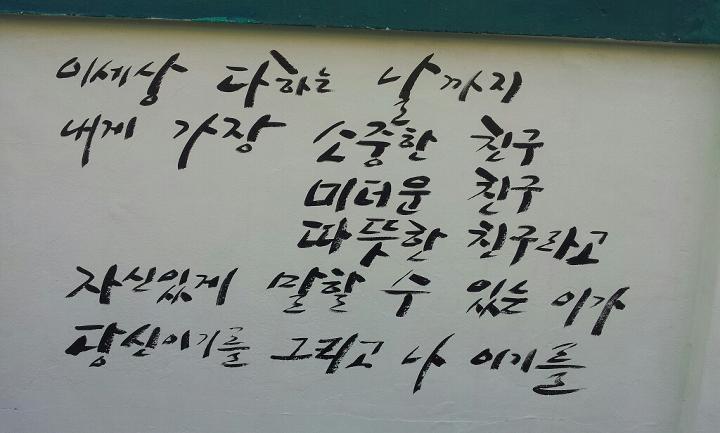 이세상 다하는 날까지
내게 가장 소중한 친구
미더운 친구
따뜻한 친구라고
자신있게 말할 수 있는 이가
당신이기를 그리고 나 이기를